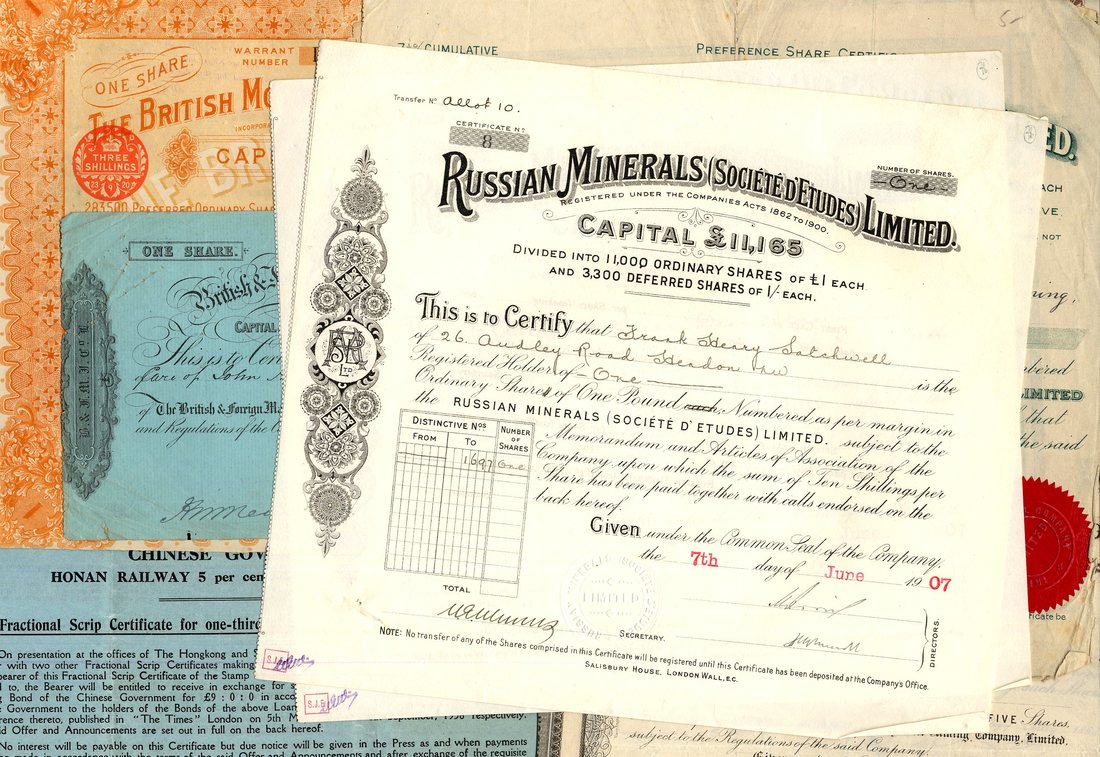 WARRANT
NUMBER
ONE SHARE.
THE BRITISH
INCORPORA
CAP
THREE
SHILLINGS
23 9 20
283500 PREFERRED ORDINARY SHA
ONE SHARE.
British &
CAPITAL
This is to Cer
Care of John
of The British & Foreign M
and Regulations of the C
B. & F. M. I. Co. L.
CHINESE GOV
HONAN RAILWAY 5 per cen
Fractional Scrip Certificate for one-third
On presentation at the offices of The Hongkong and S
with two other Fractional Scrip Certificates making
bearer of this Fractional Scrip Certificate of the Stamp
d to, the Bearer will be entitled to receive in exchange for
g Bond of the Chinese Government for £9 : 0 : 0 in acco
Government to the holders of the Bonds of the above Loan
rence thereto, published in "The Times" London on 5th M
respectively.
id Offer and Announcements are set out in full on the back hereof.
No interest will be payable on this Certificate but due notice will be given in the Press as and when payments
in accordance with the terms of the said Offer and Announcements and after exchange of the requisite
7½% CUMULATIVE
PREFERENCE SHARE CERTIF
Transfer No Allot 10.
CERTIFICATE No
8
NUMBER OF SHARES.
One
RUSSIAN MINERALS (SOCIÉTÉ D'ETUDES) LIMITED.
REGISTERED UNDER THE COMPANIES ACTS 1862 TO 1900.
CAPITAL £11,165
DIVIDED INTO 11,000 ORDINARY SHARES OF £1 EACH
AND 3,300 DEFERRED SHARES OF 1/- EACH.
This is to Certify that Frank Henry Satchwell
of 26. Audley Road Hendon NW is the
Registered Holder of One
Ordinary Shares of One Pound each, Numbered as per margin in
the RUSSIAN MINERALS (SOCIÉTÉ D'ETUDES) LIMITED. subject to the
Memorandum and Articles of Association of the
Company upon which the sum of Ten Shillings per
Share has been paid together with calls endorsed on the
back hereof.
DISTINCTIVE Nos
NUMBER
OF
SHARES
FROM
TO
1697 One
TOTAL
Given under the Common Seal of the Company,
the 7th day of June 1907
LIMITED
SECRETARY.
DIRECTORS.
NOTE: No transfer of any of the Shares comprised in this Certificate will be registered until this Certificate has been deposited at the Company's Office.
SALISBURY HOUSE, LONDON WALL, E.C.
S.J.
S.J.
ED.
EACH
VE.
NOT
ning,
mbered
LIMITED
that
the said
icate be
FIVE Shares,
Company, Limited.
subject to the Regulations of the said Company.